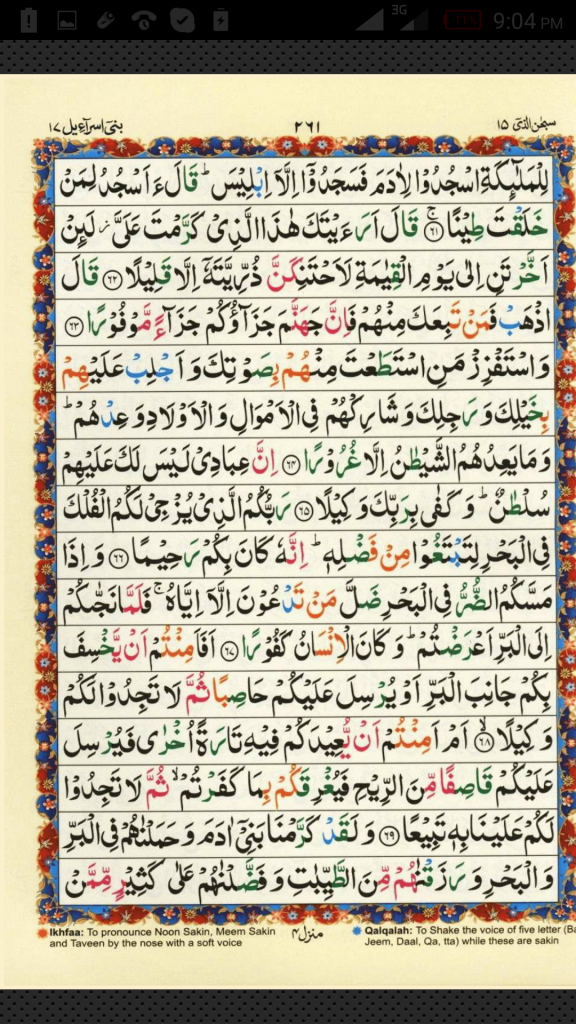 3G 11% 9:04 PM
بنی اسرآءیل ۱۷ ۲۶۱ سبحٰن الذی ۱۵
لِلْمَلٰٓئِكَةِ اسْجُدُوْا لِاٰدَمَ فَسَجَدُوْۤا اِلَّاۤ اِبْلِيْسَ ؕ قَالَ ءَاَسْجُدُ لِمَنْ
خَلَقْتَ طِيْنًا ۚ﴿۶۱﴾ قَالَ اَرَءَيْتَكَ هٰذَا الَّذِيْ كَرَّمْتَ عَلَيَّ ؗ لَئِنْ
اَخَّرْتَنِ اِلٰى يَوْمِ الْقِيٰمَةِ لَاَحْتَنِكَنَّ ذُرِّيَّتَهٗۤ اِلَّا قَلِيْلًا ﴿۶۲﴾ قَالَ
اذْهَبْ فَمَنْ تَبِعَكَ مِنْهُمْ فَاِنَّ جَهَنَّمَ جَزَآؤُكُمْ جَزَآءً مَّوْفُوْرًا ﴿۶۳﴾
وَاسْتَفْزِزْ مَنِ اسْتَطَعْتَ مِنْهُمْ بِصَوْتِكَ وَاَجْلِبْ عَلَيْهِمْ
بِخَيْلِكَ وَرَجِلِكَ وَشَارِكْهُمْ فِي الْاَمْوَالِ وَالْاَوْلَادِ وَعِدْهُمْ ؕ
وَمَا يَعِدُهُمُ الشَّيْطٰنُ اِلَّا غُرُوْرًا ﴿۶۴﴾ اِنَّ عِبَادِيْ لَيْسَ لَكَ عَلَيْهِمْ
سُلْطٰنٌ ؕ وَكَفٰى بِرَبِّكَ وَكِيْلًا ﴿۶۵﴾ رَبُّكُمُ الَّذِيْ يُزْجِيْ لَكُمُ الْفُلْكَ
فِي الْبَحْرِ لِتَبْتَغُوْا مِنْ فَضْلِهٖ ؕ اِنَّهٗ كَانَ بِكُمْ رَحِيْمًا ﴿۶۶﴾ وَاِذَا
مَسَّكُمُ الضُّرُّ فِي الْبَحْرِ ضَلَّ مَنْ تَدْعُوْنَ اِلَّاۤ اِيَّاهُ ۚ فَلَمَّا نَجّٰىكُمْ
اِلَى الْبَرِّ اَعْرَضْتُمْ ؕ وَكَانَ الْاِنْسَانُ كَفُوْرًا ﴿۶۷﴾ اَفَاَمِنْتُمْ اَنْ يَّخْسِفَ
بِكُمْ جَانِبَ الْبَرِّ اَوْ يُرْسِلَ عَلَيْكُمْ حَاصِبًا ثُمَّ لَا تَجِدُوْا لَكُمْ
وَكِيْلًا ۙ﴿۶۸﴾ اَمْ اَمِنْتُمْ اَنْ يُّعِيْدَكُمْ فِيْهِ تَارَةً اُخْرٰى فَيُرْسِلَ
عَلَيْكُمْ قَاصِفًا مِّنَ الرِّيْحِ فَيُغْرِقَكُمْ بِمَا كَفَرْتُمْ ۙ ثُمَّ لَا تَجِدُوْا
لَكُمْ عَلَيْنَا بِهٖ تَبِيْعًا ﴿۶۹﴾ وَلَقَدْ كَرَّمْنَا بَنِيْۤ اٰدَمَ وَحَمَلْنٰهُمْ فِي الْبَرِّ
وَالْبَحْرِ وَرَزَقْنٰهُمْ مِّنَ الطَّيِّبٰتِ وَفَضَّلْنٰهُمْ عَلٰى كَثِيْرٍ مِّمَّنْ
Ikhfaa: To pronounce Noon Sakin, Meem Sakin
and Taveen by the nose with a soft voice
منزل ۴
Qalqalah: To Shake the voice of five letter (Ba
Jeem, Daal, Qa, tta) while these are sakin